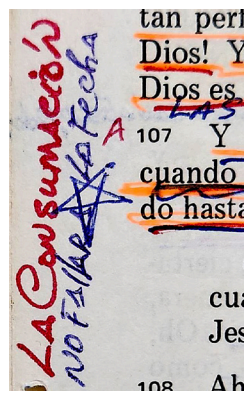 LA CONSUMACIÓN
NO FALLARÁ LA FECHA
tan perf
Dios! Y
Dios es
LAS
A
107 Y
cuando
do hasta
cua
Jes
108 Ah